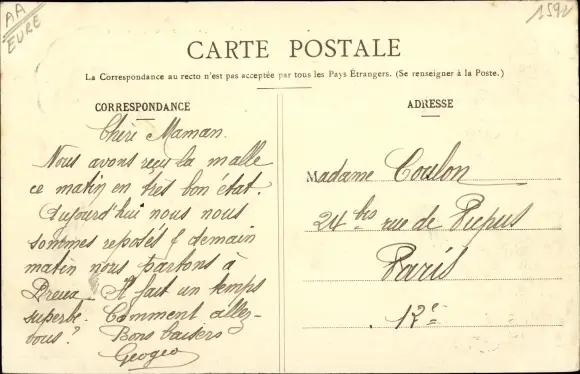 AA
EURE
1592
CARTE POSTALE
La Correspondance au recto n'est pas acceptée par tous les Pays Étrangers. (Se renseigner à la Poste.)
CORRESPONDANCE
Chère Maman.
Nous avons reçu la malle
ce matin en très bon état.
Aujourd'hui nous nous
sommes reposés & demain
matin nous partons à
Dreux. Il fait un temps
superbe. Comment allez-
vous? Bons baisers
Geogeo
ADRESSE
Madame Coulon
24 bis rue de Picpus
Paris
12e